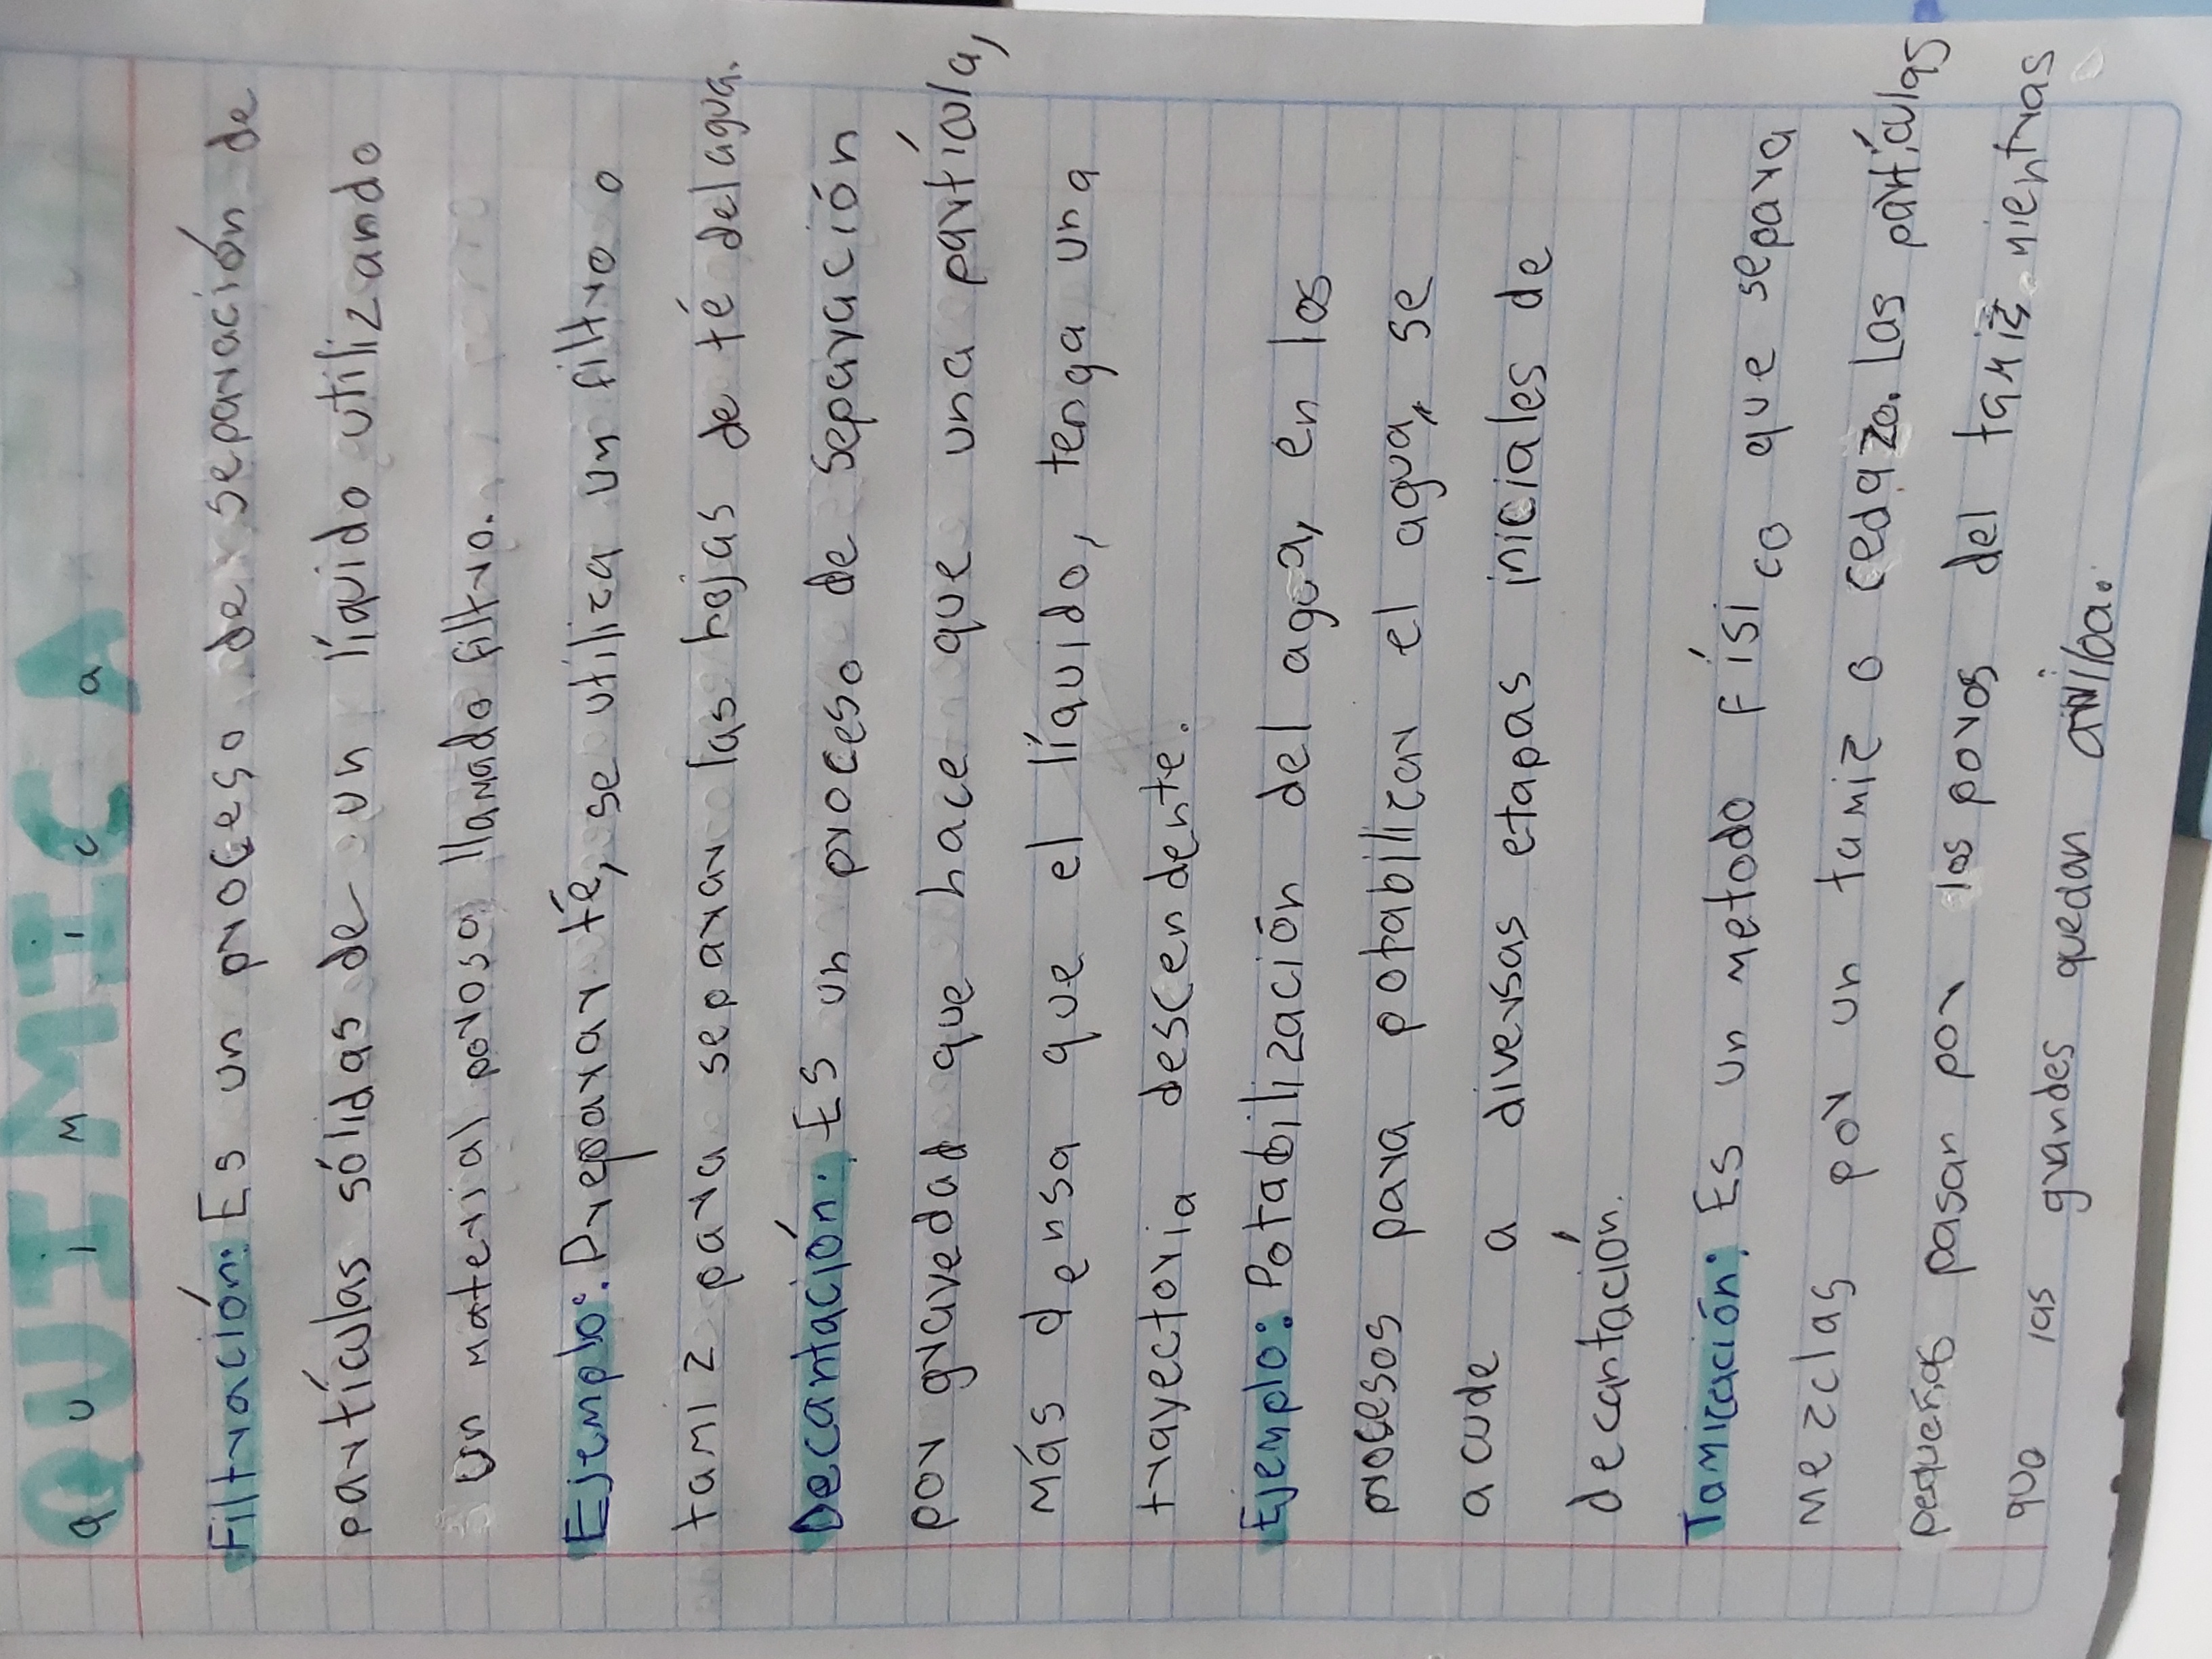 QUIMICA
Química
Filtración: Es un proceso de separación de
partículas sólidas de un líquido utilizando
un material poroso llamado filtro.
Ejemplo: Preparar té, se utiliza un filtro o
tamiz para separar las hojas de té del agua.
Decantación: Es un proceso de separación
por gravedad que hace que una partícula,
más densa que el líquido, tenga una
trayectoria descendente.
Ejemplo: Potabilización del agua, en los
procesos para potabilizar el agua, se
acude a diversas etapas iniciales de
decantación.
Tamización: Es un metodo físico que separa
mezclas por un tamiz o cedazo. Las partículas
pequeñas pasan por los poros del tamiz mientras
que las grandes quedan arriba.